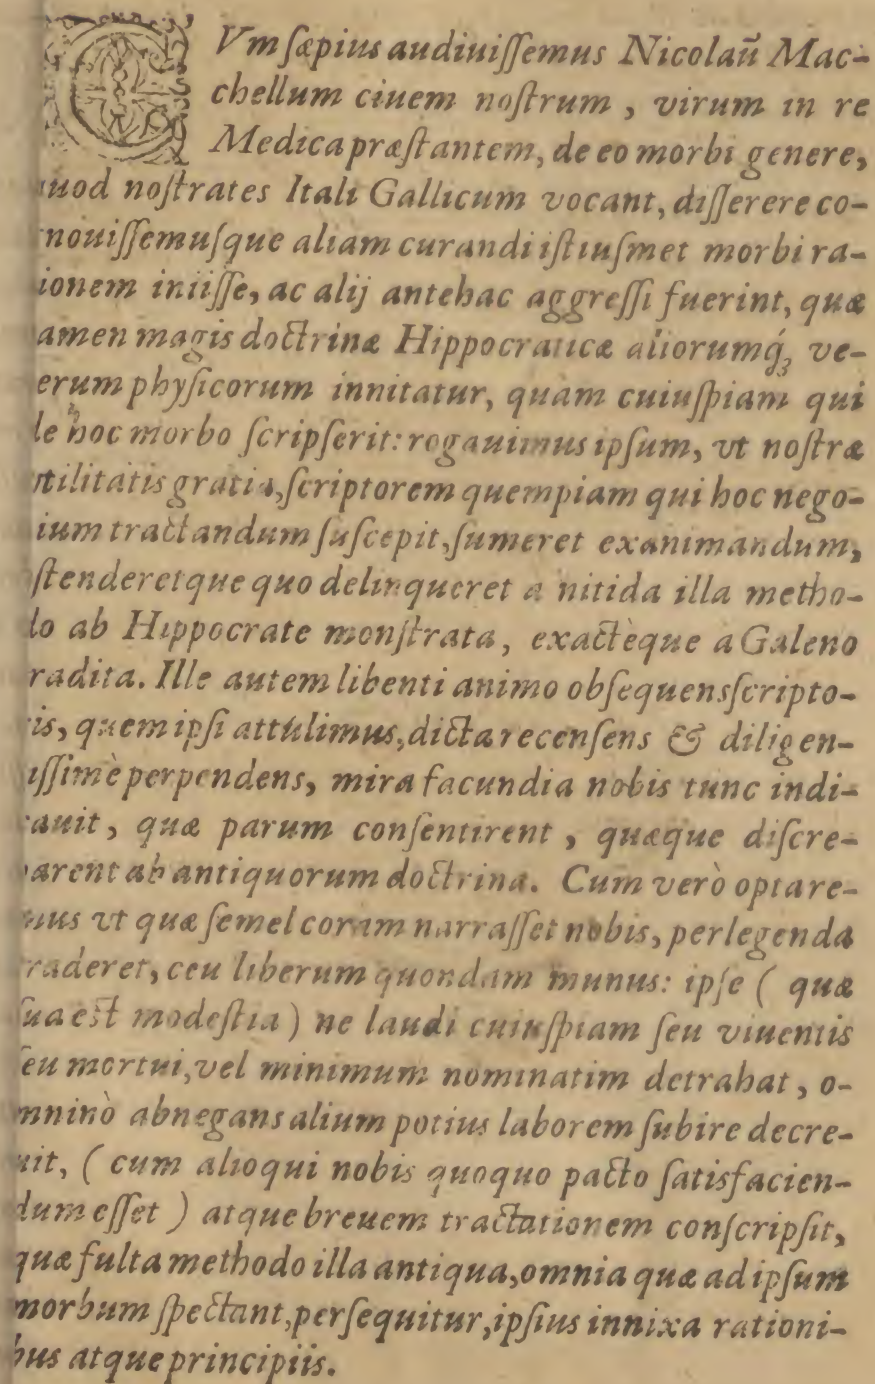 CVm sæpius audiuissemus Nicolaũ Mac-
chellum ciuem nostrum, virum in re
Medica præstantem, de eo morbi genere,
quod nostrates Itali Gallicum vocant, disserere co-
nouissemusque aliam curandi istiusmet morbi ra-
ionem iniisse, ac alij antehac aggressi fuerint, quæ
amen magis doctrinæ Hippocraticæ aliorumq́ꝫ ve-
erum physicorum innitatur, quàm cuiuspiam qui
de hoc morbo scripserit: rogauimus ipsum, vt nostræ
vtilitatis gratia, scriptorem quempiam qui hoc nego-
ium tractandum suscepit, sumeret exanimandum,
ostenderetque quo delinqueret a nitida illa metho-
do ab Hippocrate monstrata, exactèque a Galeno
radita. Ille autem libenti animo obsequens scripto-
ris, quem ipsi attulimus, dicta recensens & diligen-
issimè perpendens, mira facundia nobis tunc indi-
cauit, quæ parum consentirent, quæque discre-
parent ab antiquorum doctrina. Cum verò optare-
mus vt quæ semel coram narrasset nobis, perlegenda
raderet, ceu liberum quondam munus: ipse ( quæ
sua est modestia ) ne laudi cuiuspiam seu viuentis
seu mortui, vel minimum nominatim detrahat, o-
mninò abnegans alium potius laborem subire decre-
uit, ( cum alioqui nobis quoquo pacto satisfacien-
dum esset ) atque breuem tractationem conscripsit,
quæ fulta methodo illa antiqua, omnia quæ ad ipsum
morbum spectant, persequitur, ipsius innixa rationi-
bus atque principiis.